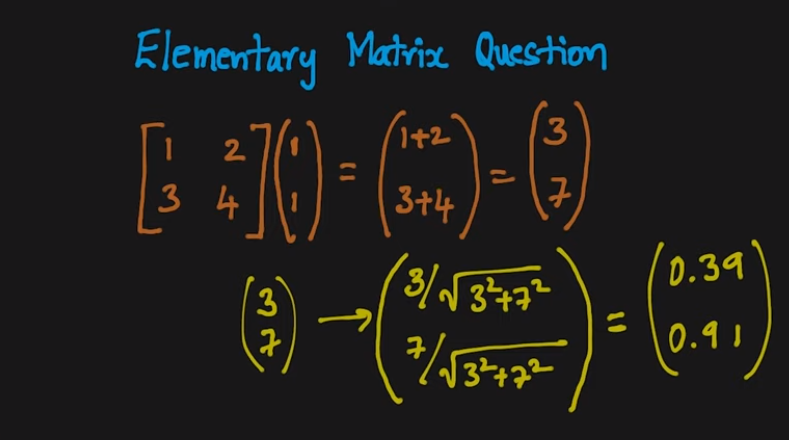 Elementary Matrix Question
[1 2; 3 4] (1; 1) = (1+2; 3+4) = (3; 7)
(3; 7) → (3/√(3²+7²); 7/√(3²+7²)) = (0.39; 0.91)